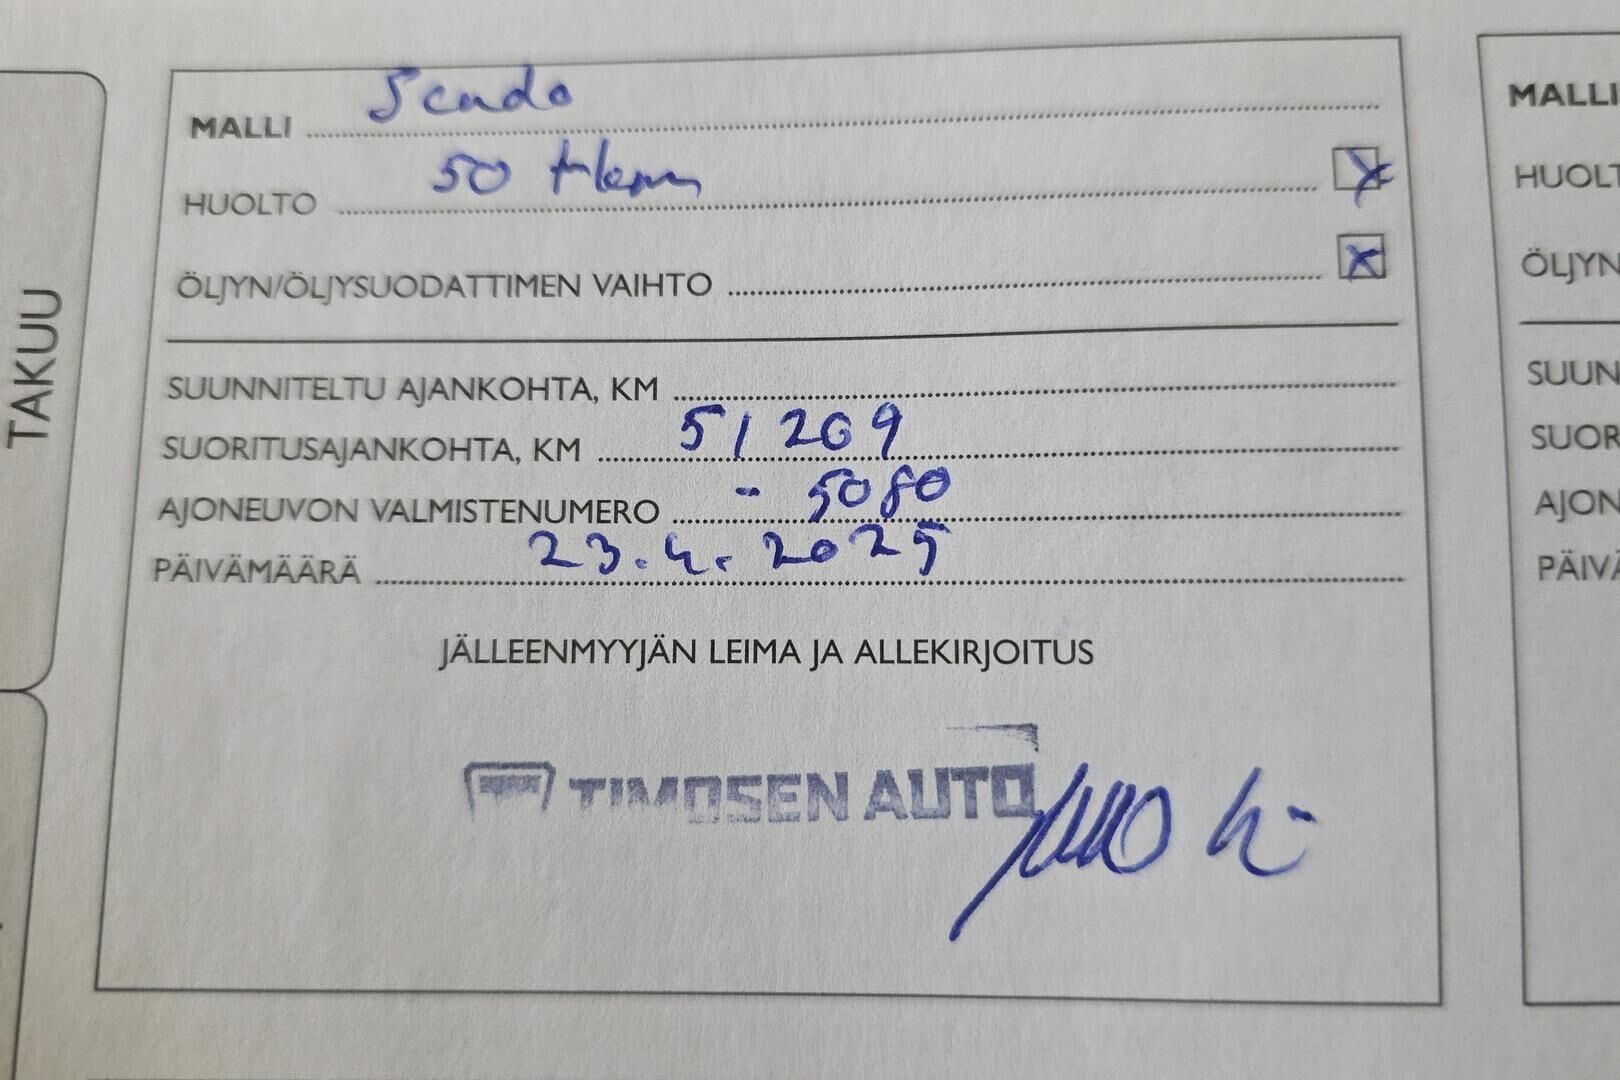 TAKUU
MALLI Scudo
HUOLTO 50 tkm
ÖLJYN/ÖLJYSUODATTIMEN VAIHTO
SUUNNITELTU AJANKOHTA, KM
SUORITUSAJANKOHTA, KM 51 209
AJONEUVON VALMISTENUMERO - 5080
PÄIVÄMÄÄRÄ 23.4.2025
JÄLLEENMYYJÄN LEIMA JA ALLEKIRJOITUS
TIMOSEN AUTO
MALLI
HUOLT
ÖLJYN
SUUN
SUOR
AJON
PÄIVÄ